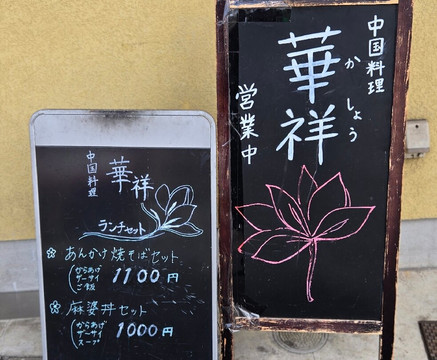 中国料理
華祥
ランチセット
あんかけ焼そばセット
からあげ
ザーサイ
ご飯
1100円
麻婆丼セット
からあげ
ザーサイ
スープ
1000円
中国料理
華祥
かしょう
営業中